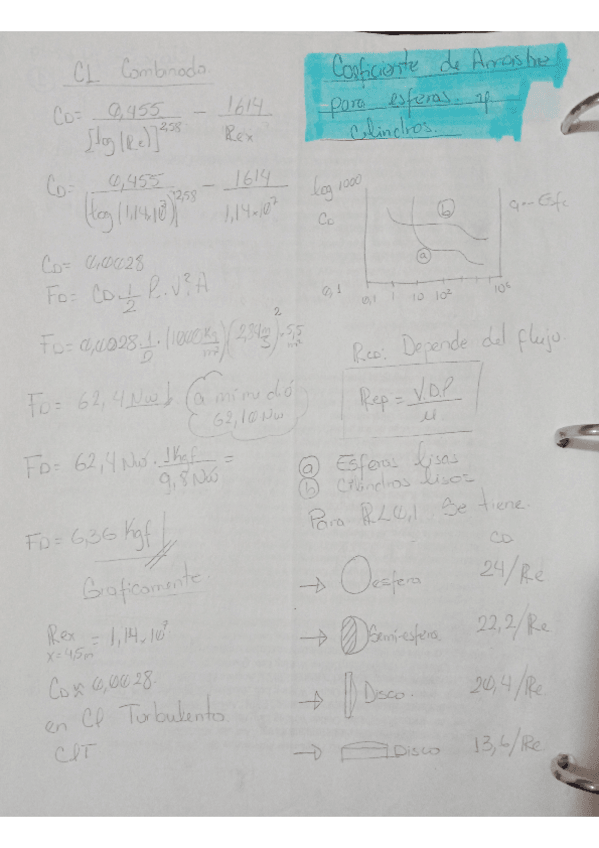 CL Combinado
CD = 0,455 / [log(Re)]^2,58 − 1614 / Rex
CD = 0,455 / (log(1,14×10^7))^2,58 − 1614 / 1,14×10^7
CD = 0,0028
FD = CD · 1/2 · ρ · V² · A
FD = 0,0028 · 1/2 · (1000 Kg/m³)
FD = 62,4 Nw
a mi me dió
62,10 Nw
FD = 62,4 Nw · 1Kgf / 9,8 Nw =
FD = 6,36 Kgf
Graficamente
Rex = 1,14×10^7
x=4,5m
CD ≈ 0,0028
en CL Turbulento
CLT
Coeficiente de Arrastre
para esferas y
Cilindros.
log 1000
CD
b
a
0,1
0,1 1 10 10² 10⁶
Depende del flujo
Rep = V.D.ρ / μ
a Esferas lisas
b Cilindros lisos
Para R<0,1 Se tiene
CD
→ esfera 24/Re
→ Semi-esfera 22,2/Re
→ Disco. 20,4/Re
→ Disco 13,6/Re